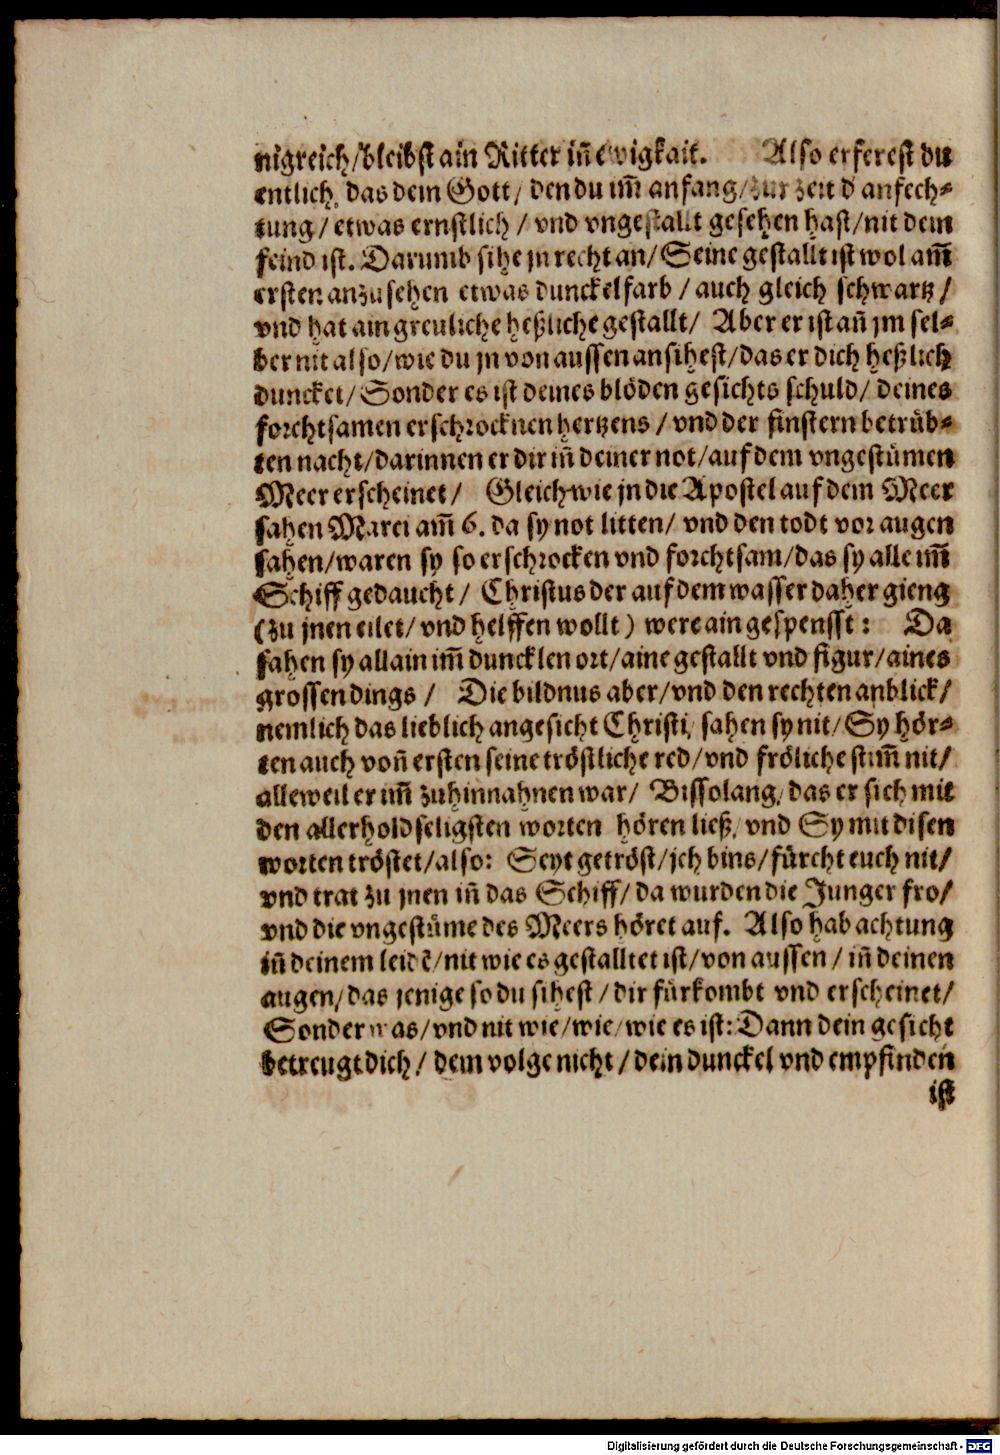 nigreich/bleibst ain Ritter iñ ewigkait. Also erferest du
entlich, das dem Gott/ den du im̃ anfang/ zur zeit d̕ anfech-
tung/ etwas ernstlich/ vnd vngestallt gesehen hast/nit dein
feind ist. Darumb sihe jn recht an/ Seine gestallt ist wol am̃
ersten anzusehen etwas dunckelfarb/ auch gleich schwartz/
vnd hat ain greuliche heßliche gestallt/ Aber er ist añ jm sel-
ber nit also/wie du jn von aussen ansihest/das er dich heßlich
duncket/ Sonder es ist deines blöden gesichts schuld/ deines
forchtsamen erschrocknen hertzens/ vnd der finstern betrüb-
ten nacht/darinnen er dir iñ deiner not/auf dem vngestümen
Meer erscheinet/ Gleich wie jn die Apostel auf dem Meer
sahen Marci am̃ 6. da sy not litten/ vnd den todt vor augen
sahen/waren sy so erschrocken vnd forchtsam/das sy alle im̃
Schiff gedaucht/ Christus der auf dem wasser daher gieng
(zu jnen eilet/ vnd helffen wollt) were ain gespensst: Da
sahen sy allain im̃ duncklen ort/aine gestallt vnd figur/aines
grossen dings/ Die bildnus aber/vnd den rechten anblick/
nemlich das lieblich angesicht Christi, sahen sy nit/ Sy hör-
ten auch voñ ersten seine tröstliche red/vnd fröliche stim̃ nit/
alleweil er im̃ zuhinnahnen war/ Bissolang, das er sich mit
den allerholdseligsten worten hören ließ, vnd Sy mit disen
worten tröstet/also: Seyt getröst/jch bins/fürcht euch nit/
vnd trat zu jnen iñ das Schiff/ da wurden die Junger fro/
vnd die vngestüme des Meers höret auf. Also hab achtung
iñ deinem leidē/nit wie es gestalltet ist/von aussen/ iñ deinen
augen/das jenige so du sihest/dir fürkombt vnd erscheinet/
Sonder was/vnd nit wie/wie/wie es ist: Dann dein gesicht
betreugt dich/ dem volge nicht/dein dunckel vnd empfinden
ist
Digitalisierung gefördert durch die Deutsche Forschungsgemeinschaft - DFG